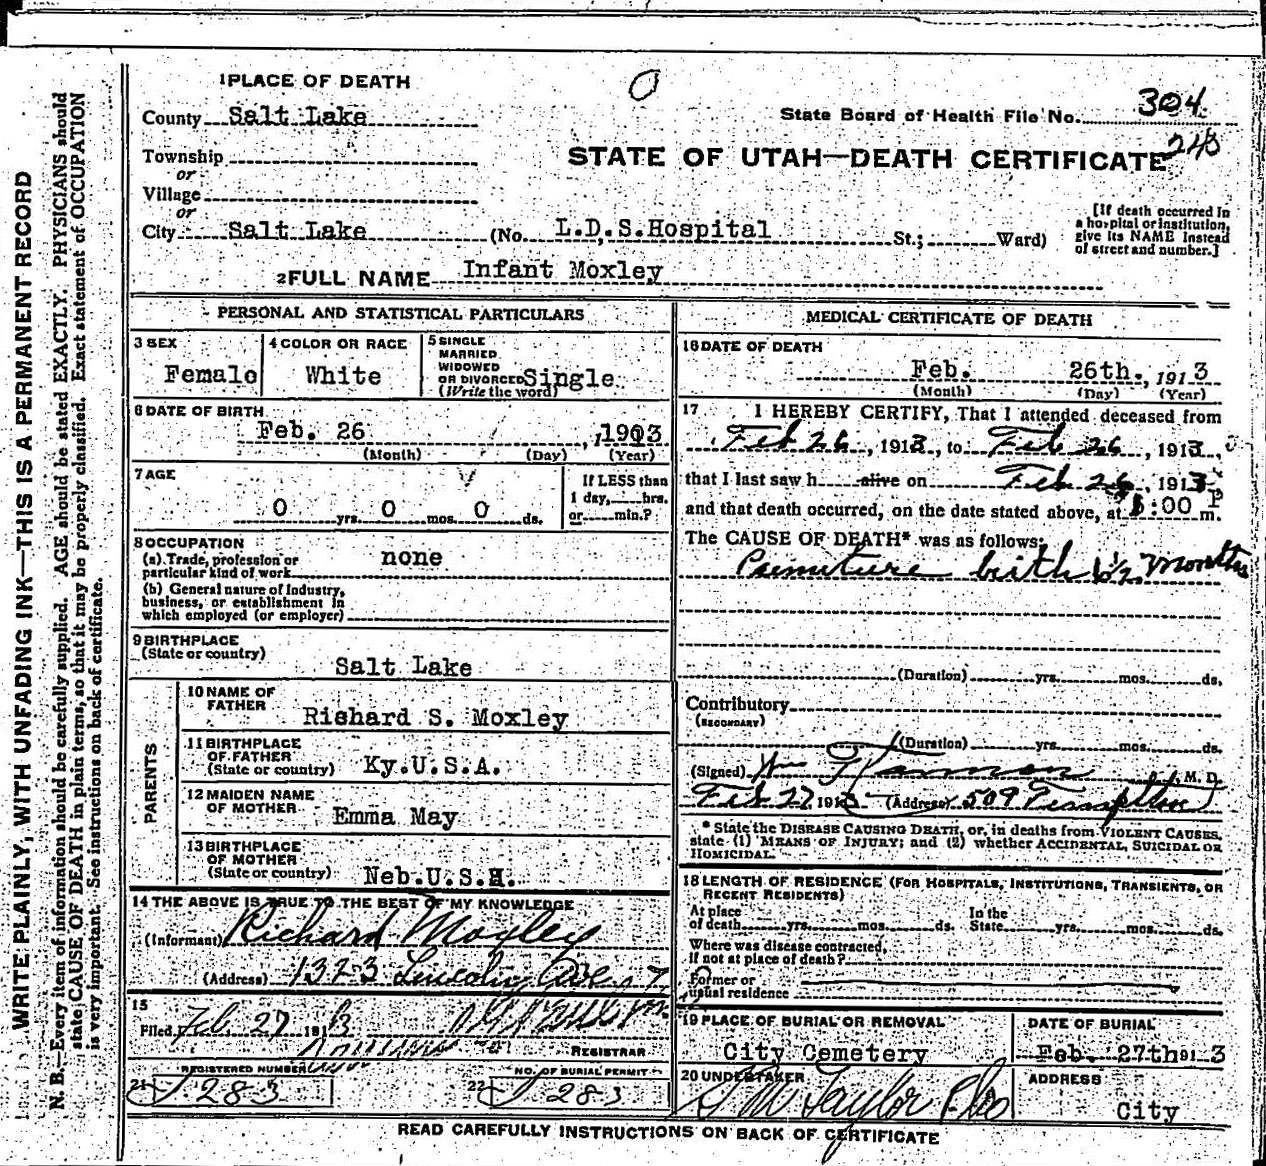 1 PLACE OF DEATH
County Salt Lake
State Board of Health File No. 304
Township
or
STATE OF UTAH—DEATH CERTIFICATE
Village
or
City Salt Lake (No. L.D.S. Hospital St.; Ward)
[If death occurred in
a hospital or institution,
give its NAME instead
of street and number.]
2 FULL NAME Infant Moxley
PERSONAL AND STATISTICAL PARTICULARS
3 SEX
Female
4 COLOR OR RACE
White
5 SINGLE
MARRIED
WIDOWED
OR DIVORCED Single
(Write the word)
6 DATE OF BIRTH
Feb. 26, 1913
(Month) (Day) (Year)
7 AGE
0 yrs. 0 mos. 0 ds.
If LESS than
1 day, hrs.
or min.?
8 OCCUPATION
(a) Trade, profession or
particular kind of work none
(b) General nature of industry,
business, or establishment in
which employed (or employer)
9 BIRTHPLACE
(State or country)
Salt Lake
PARENTS
10 NAME OF
FATHER
Richard S. Moxley
11 BIRTHPLACE
OF FATHER
(State or country) Ky. U.S.A.
12 MAIDEN NAME
OF MOTHER
Emma May
13 BIRTHPLACE
OF MOTHER
(State or country) Neb. U.S.
14 THE ABOVE IS TRUE TO THE BEST OF MY KNOWLEDGE
(Informant) Richard Moxley
(Address) 1323 Lincoln Ave
15
Filed Feb. 27 1913
REGISTRAR
REGISTERED NUMBER
21 283
NO. OF BURIAL PERMIT
22 283
MEDICAL CERTIFICATE OF DEATH
16 DATE OF DEATH
Feb. 26th., 1913
(Month) (Day) (Year)
17 I HEREBY CERTIFY, That I attended deceased from
Feb 26, 1913, to Feb 26, 1913,
that I last saw h alive on Feb 26, 1913
and that death occurred, on the date stated above, at :00 P m.
The CAUSE OF DEATH* was as follows:
Premuture birth 6½ Months
(Duration) yrs. mos. ds.
Contributory
(SECONDARY)
(Duration) yrs. mos. ds.
(Signed) Wm M. D.
Feb 27 1913 (Address) 509 Templeton
* State the DISEASE CAUSING DEATH, or, in deaths from VIOLENT CAUSES,
state (1) MEANS OF INJURY; and (2) whether ACCIDENTAL, SUICIDAL OR
HOMICIDAL.
18 LENGTH OF RESIDENCE (FOR HOSPITALS, INSTITUTIONS, TRANSIENTS, OR
RECENT RESIDENTS)
At place
of death yrs. mos. ds.
In the
State yrs. mos. ds.
Where was disease contracted,
if not at place of death?
Former or
usual residence
19 PLACE OF BURIAL OR REMOVAL
City Cemetery
DATE OF BURIAL
Feb. 27th 191 3
20 UNDERTAKER
S M Taylor & Co
ADDRESS
City
READ CAREFULLY INSTRUCTIONS ON BACK OF CERTIFICATE
WRITE PLAINLY, WITH UNFADING INK—THIS IS A PERMANENT RECORD
N. B.—Every item of information should be carefully supplied. AGE should be stated EXACTLY. PHYSICIANS should
state CAUSE OF DEATH in plain terms, so that it may be properly classified. Exact statement of OCCUPATION
is very important. See instructions on back of certificate.